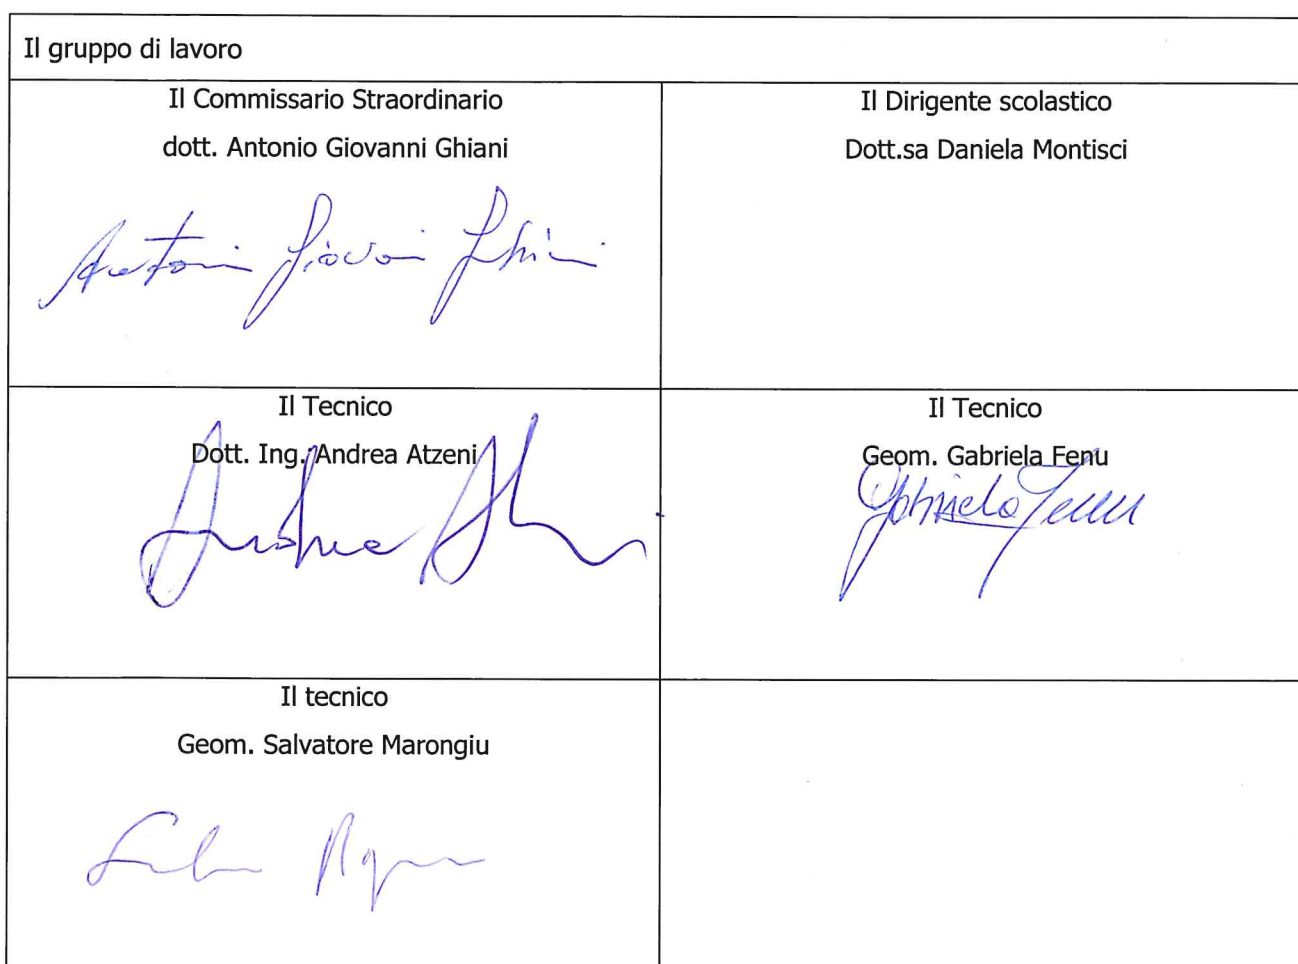 Il gruppo di lavoro
Il Commissario Straordinario
dott. Antonio Giovanni Ghiani
Antonio Giovanni Ghiani
Il Dirigente scolastico
Dott.sa Daniela Montisci
Il Tecnico
Dott. Ing. Andrea Atzeni
Andrea
Il Tecnico
Geom. Gabriela Fenu
Gabriela Fenu
Il tecnico
Geom. Salvatore Marongiu